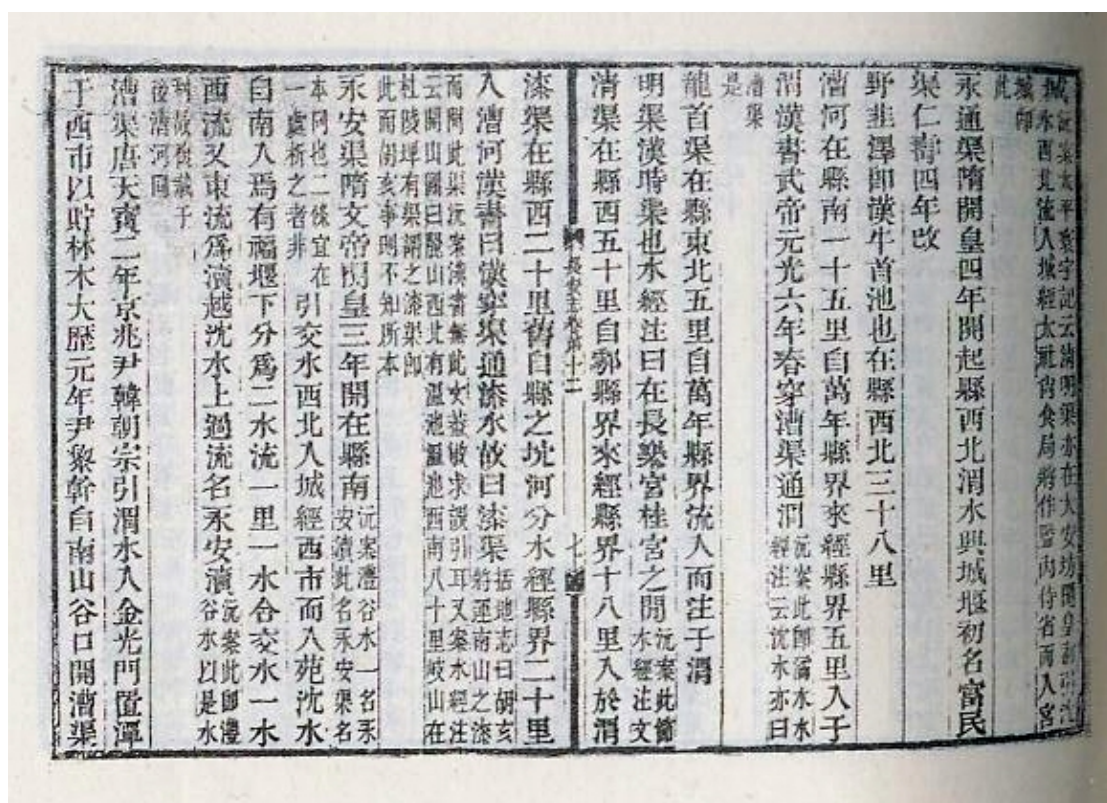 城沅案太平寰宇記云清明渠亦在大安坊隋開皇初引沈水西北流入城經太廟食局將作監內侍省而入宮
城卽此
永通渠隋開皇四年開起縣西北渭水興城堰初名富民
渠仁壽四年改
野韭澤卽漢牛首池也在縣西北三十八里
漕河在縣南一十五里自萬年縣界來經縣界五里入于
渭漢書武帝元光六年春穿漕渠通渭沅案此卽潏水水經注云沈水亦曰
漕渠是
龍首渠在縣東北五里自萬年縣界流入而注于渭
明渠漢時渠也水經注曰在長樂宮桂宮之間沅案此節水經注文
清渠在縣西五十里自鄠縣界來經縣界十八里入於渭
長安志卷第十二 七
漆渠在縣西二十里舊自縣之坈河分水經縣界二十里
入漕河漢書曰漢穿渠通漆水故曰漆渠括地志曰胡亥將運南山之漆
而開此渠沅案漢書無此文蓋敏求誤引耳又案水經注云開山圖曰麗山西北有溫池溫池西南八十里岐山在
杜陵埋有渠謂之漆渠卽此而胡亥事則不知所本
永安渠隋文帝開皇三年開在縣南沅案灃谷水一名永安瀆此名永安渠名
本同也二條宜在一處析之者非引交水西北入城經西市而入苑沈水
自南入焉有福堰下分爲二水流一里一水合交水一水
西流又東流爲瀆越沈水上過流名永安瀆沅案此卽灃谷水以是水
利故後載于後漕河同
漕渠唐天寶二年京兆尹韓朝宗引渭水入金光門置潭
于西市以貯林木大歷元年尹黎幹自南山谷口開漕渠